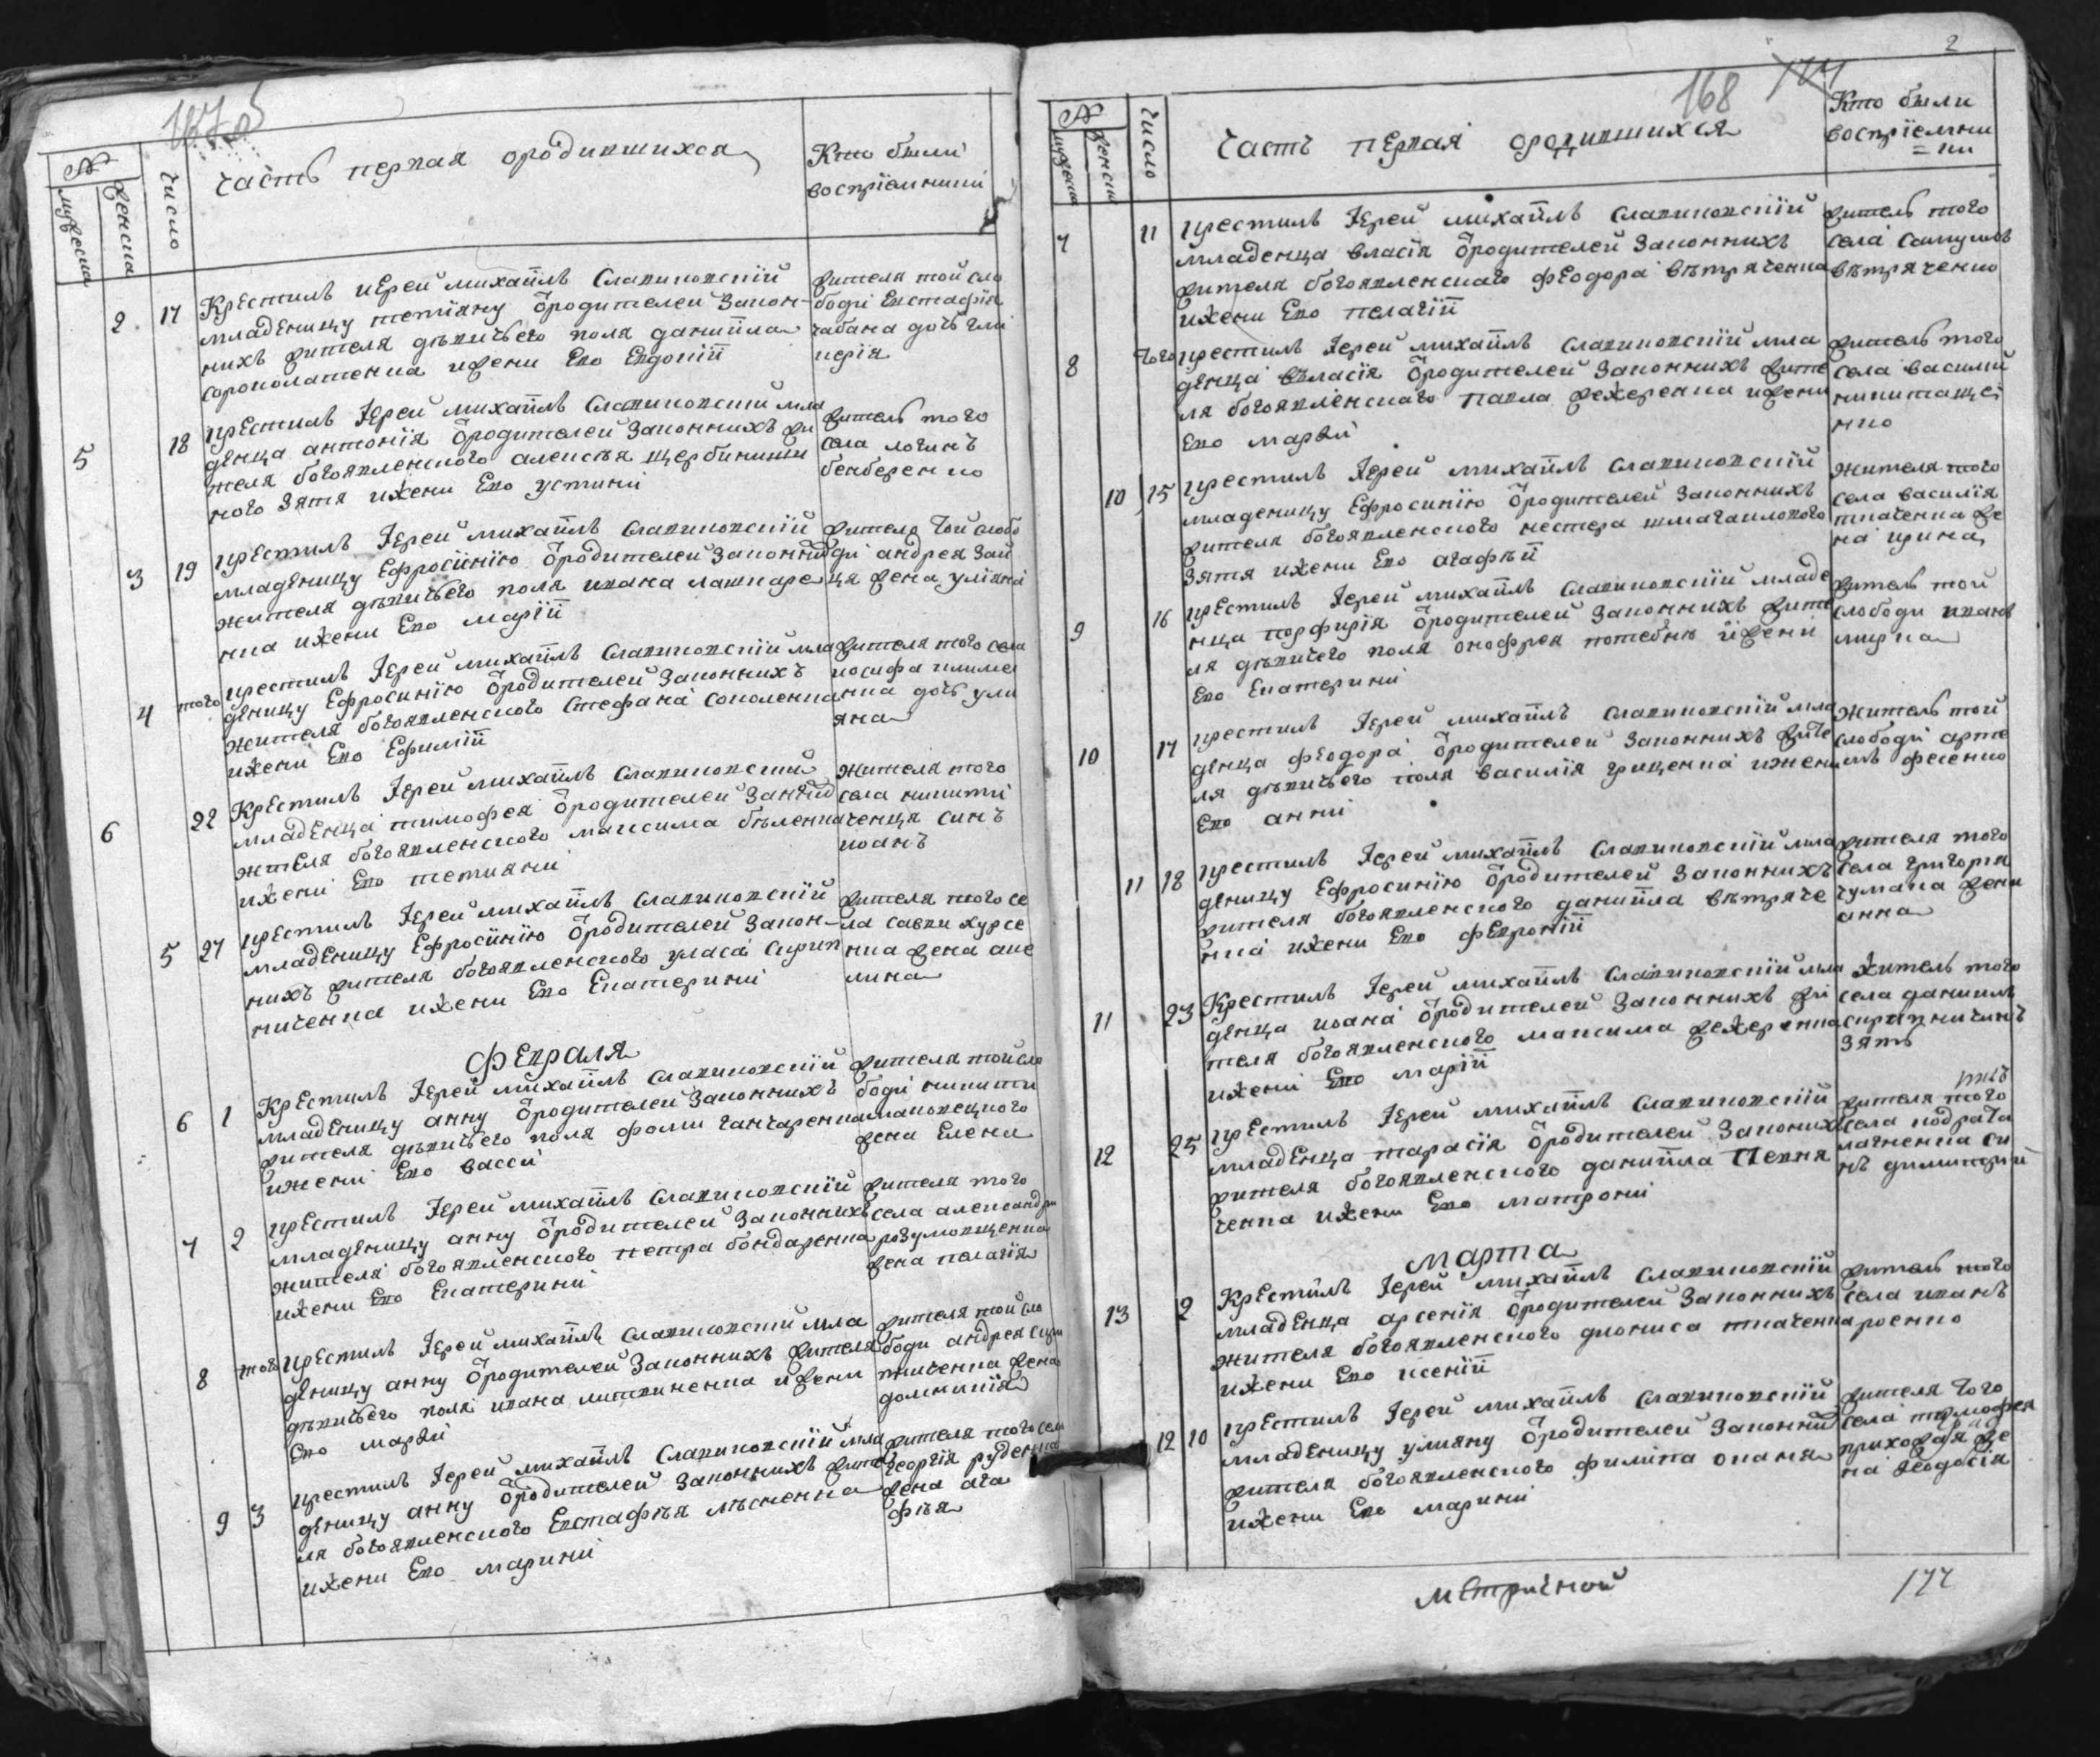 часть первая о родившихся
Кто были
воспріемники
№
мужеска
женска
число
2 17 Крестилъ иерей михаилъ Славиковскій
младеницу тетіяну ѿ родителей закон-
нихъ жителя дѣвичьего поля даниила
сороколатенка и жени Его Евдокіи
жителя той сло
боди Евстафія
чабана дочь гли
керія
5 18 крестилъ Іерей михаилъ Славиковскій мла
денца антонія ѿ родителей законнихъ жи
теля богоявленского алексѣя щербини
ного зятя и жени Его устини
житель того
села логинъ
бенберенко
3 19 крестилъ Іерей михаилъ Славиковскій
младеницу Ефросинію ѿ родителей законнихъ
жителя дѣвичьего поля ивана лашкаре
нка и жени Его маріи
жителя той слобо
ди андрея зай
ця жена уліяна
4 того крестилъ Іерей михаилъ Славиковскій мла
деницу Ефросинію ѿ родителей законнихъ
жителя богоявленского Стефана соколенка
и жени Его Ефиміи
жителя того села
иосифа климе
нка дочь ули
яна
6 22 Крестилъ Іерей михаилъ Славиковский
младенца тимофея ѿ родителей законнихъ
жителя богоявленского максима бѣленка
и жени Его тетияни
жителя того
села никити
ченця синъ
иоанъ
5 27 крестилъ Іерей михаилъ Славиковскій
младеницу Ефросинію ѿ родителей закон-
нихъ жителя богоявленского уласа скрип
ниченка и жени Его Екатерини
жителя того се
ла савки курсе
нка жена аке
лина
февраля
6 1 Крестилъ Іерей михаилъ Славиковскій
младеницу анну ѿ родителей законнихъ
жителя дѣвичьего поля фоми ганчаренка
и жени Его васси
жителя той сло
боди никити
маковецкого
жена Елена
7 2 крестилъ Іерей михаилъ Славиковскій
младеницу анну ѿ родителей законнихъ
жителя богоявленского петра бондаренка
и жени Его Екатерини
жителя того
села александра
розумовщенка
жена пелагія
8 того крестилъ Іерей михаилъ Славиковскій мла
деницу анну ѿ родителей законнихъ жителя
дѣвичьего поля ивана литвиненка и жени
Его марфи
жителя той сло
боди андрея скрип
ниченка жена
домникія
9 3 крестилъ Іерей михаилъ Славиковскій мла
деницу анну ѿ родителей законнихъ жите
ля богоявленского Евстафѣя лѣсненка
и жени Его марини
жителя того села
георгія руденка
жена ага
фѣя
2
168
№
мужеска
женска
число
часть первая о родившихся
Кто были
воспріемни
=ки
7 11 крестилъ Іерей михаилъ Славиковскій
младенца власія ѿ родителей законнихъ
жителя богоявленскаго феодора вѣтряченка
и жени Его пелагіи
житель того
села самуилъ
вѣтряченко
8 того крестилъ Іерей михаилъ Славиковскій мла
денца власія ѿ родителей законнихъ жите
ля богоявленскаго павла жежеренка и жени
Его марфи
житель того
села василий
никитаще
нко
10 15 крестилъ Іерей михаилъ Славиковскій
младеницу Ефросинію ѿ родителей законнихъ
жителя богоявленского нестера шмагайлового
зятя и жени Его агафѣи
жителя того
села василія
ткаченка же
на ирина
9 16 крестилъ Іерей михаилъ Славиковскій младе
нца порфирія ѿ родителей законнихъ жите
ля дѣвичего поля онофрея потебнѣ и жени
Его Екатерини
житель той
слободи иванъ
мирка
10 17 крестилъ Іерей михаилъ Славиковскій мла
денца феодора ѿ родителей законнихъ жите
ля дѣвичьего поля василія грищенка и жени
Его анни
житель той
слободи арте
мъ фесенко
11 18 крестилъ Іерей михаилъ Славиковскій мла
деницу Ефросинію ѿ родителей законнихъ
жителя богоявленского даниила вѣтряче
нка и жени Его февроніи
жителя того
села григорія
чумака жена
анна
11 23 Крестилъ Іерей михаилъ Славиковскій мла
денца иоана ѿ родителей законнихъ жи
теля богоявленского максима жежеренка
и жени Его маріи
житель того
села даниилъ
скрипничинъ
зять
12 25 крестилъ Іерей михаилъ Славиковскій
младенца тарасія ѿ родителей законихъ
жителя богоявленского даниила Певня
ченка и жени Его матрони
жителя того
села кодрата
магненка си
нъ димитрий
марта
13 2 Крестилъ Іерей михаилъ Славиковскій
младенца арсенія ѿ родителей законнихъ
жителя богоявленского диониса ткаченка
и жени Его ксеніи
житель того
села иванъ
роенко
12 10 крестилъ Іерей михаилъ Славиковскій
младеницу улияну ѿ родителей законнихъ
жителя богоявленского филипа опаня
и жени Его марини
жителя того
села тимофея
приходя же
на феодосія
метричной
177